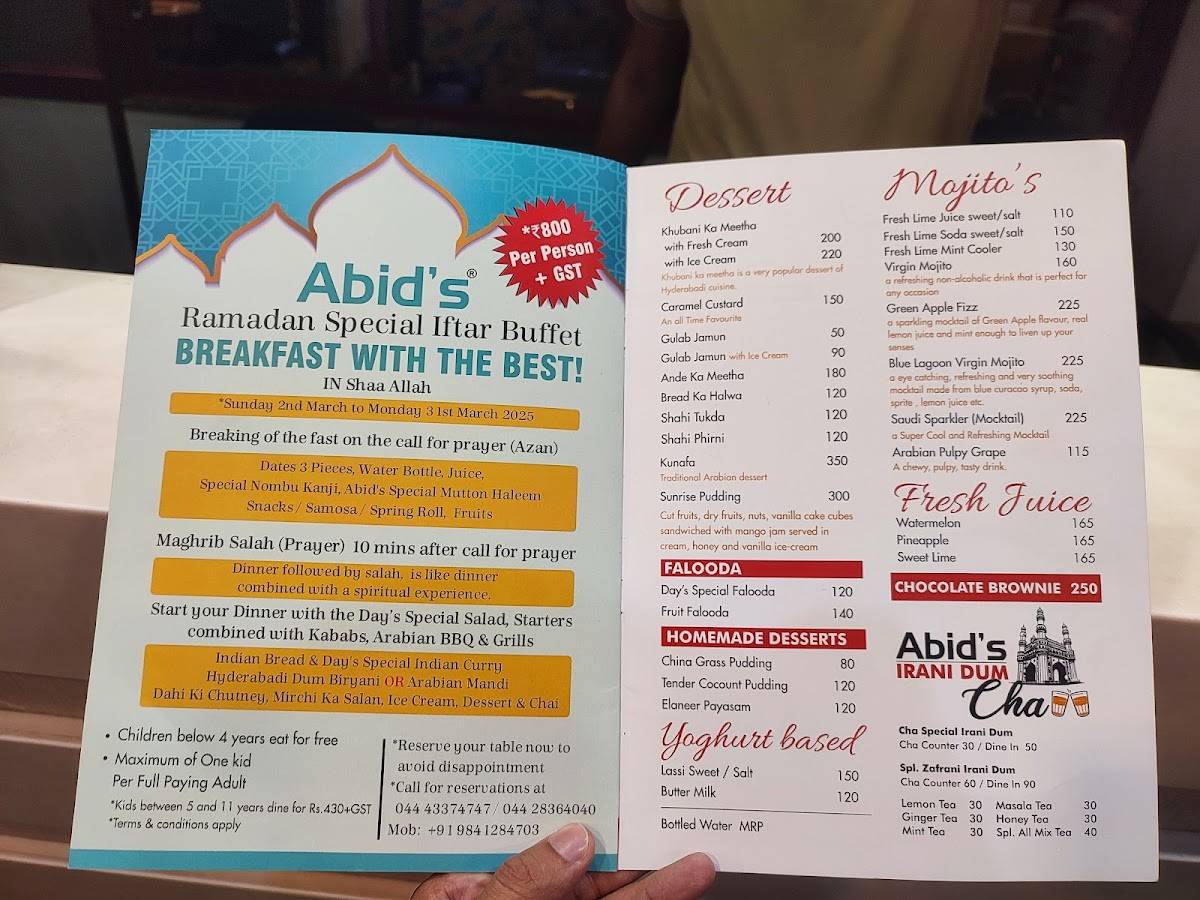 *₹800
Per Person
+ GST
Abid's®
Ramadan Special Iftar Buffet
BREAKFAST WITH THE BEST!
IN Shaa Allah
*Sunday 2nd March to Monday 31st March 2025
Breaking of the fast on the call for prayer (Azan)
Dates 3 Pieces, Water Bottle, Juice,
Special Nombu Kanji, Abid's Special Mutton Haleem
Snacks / Samosa / Spring Roll, Fruits
Maghrib Salah (Prayer) 10 mins after call for prayer
Dinner followed by salah, is like dinner
combined with a spiritual experience.
Start your Dinner with the Day's Special Salad, Starters
combined with Kababs, Arabian BBQ & Grills
Indian Bread & Day's Special Indian Curry
Hyderabadi Dum Biryani OR Arabian Mandi
Dahi Ki Chutney, Mirchi Ka Salan, Ice Cream, Dessert & Chai
• Children below 4 years eat for free
• Maximum of One kid
Per Full Paying Adult
*Kids between 5 and 11 years dine for Rs.430+GST
*Terms & conditions apply
*Reserve your table now to
avoid disappointment
*Call for reservations at
044 43374747 / 044 28364040
Mob: +91 9841284703
Dessert
Khubani Ka Meetha
with Fresh Cream 200
with Ice Cream 220
Khubani ka meetha is a very popular dessert of
Hyderabadi cuisine.
Caramel Custard 150
An all Time Favourite
Gulab Jamun 50
Gulab Jamun with Ice Cream 90
Ande Ka Meetha 180
Bread Ka Halwa 120
Shahi Tukda 120
Shahi Phirni 120
Kunafa 350
Traditional Arabian dessert
Sunrise Pudding 300
Cut fruits, dry fruits, nuts, vanilla cake cubes
sandwiched with mango jam served in
cream, honey and vanilla ice-cream
FALOODA
Day's Special Falooda 120
Fruit Falooda 140
HOMEMADE DESSERTS
China Grass Pudding 80
Tender Cocount Pudding 120
Elaneer Payasam 120
Yoghurt based
Lassi Sweet / Salt 150
Butter Milk 120
Bottled Water MRP
Mojito's
Fresh Lime Juice sweet/salt 110
Fresh Lime Soda sweet/salt 150
Fresh Lime Mint Cooler 130
Virgin Mojito 160
a refreshing non-alcoholic drink that is perfect for
any occasion
Green Apple Fizz 225
a sparkling mocktail of Green Apple flavour, real
lemon juice and mint enough to liven up your
senses
Blue Lagoon Virgin Mojito 225
a eye catching, refreshing and very soothing
mocktail made from blue curacao syrup, soda,
sprite , lemon juice etc.
Saudi Sparkler (Mocktail) 225
a Super Cool and Refreshing Mocktail
Arabian Pulpy Grape 115
A chewy, pulpy, tasty drink.
Fresh Juice
Watermelon 165
Pineapple 165
Sweet Lime 165
CHOCOLATE BROWNIE 250
Abid's
IRANI DUM
Cha
Cha Special Irani Dum
Cha Counter 30 / Dine In 50
Spl. Zafrani Irani Dum
Cha Counter 60 / Dine In 90
Lemon Tea 30 Masala Tea 30
Ginger Tea 30 Honey Tea 30
Mint Tea 30 Spl. All Mix Tea 40